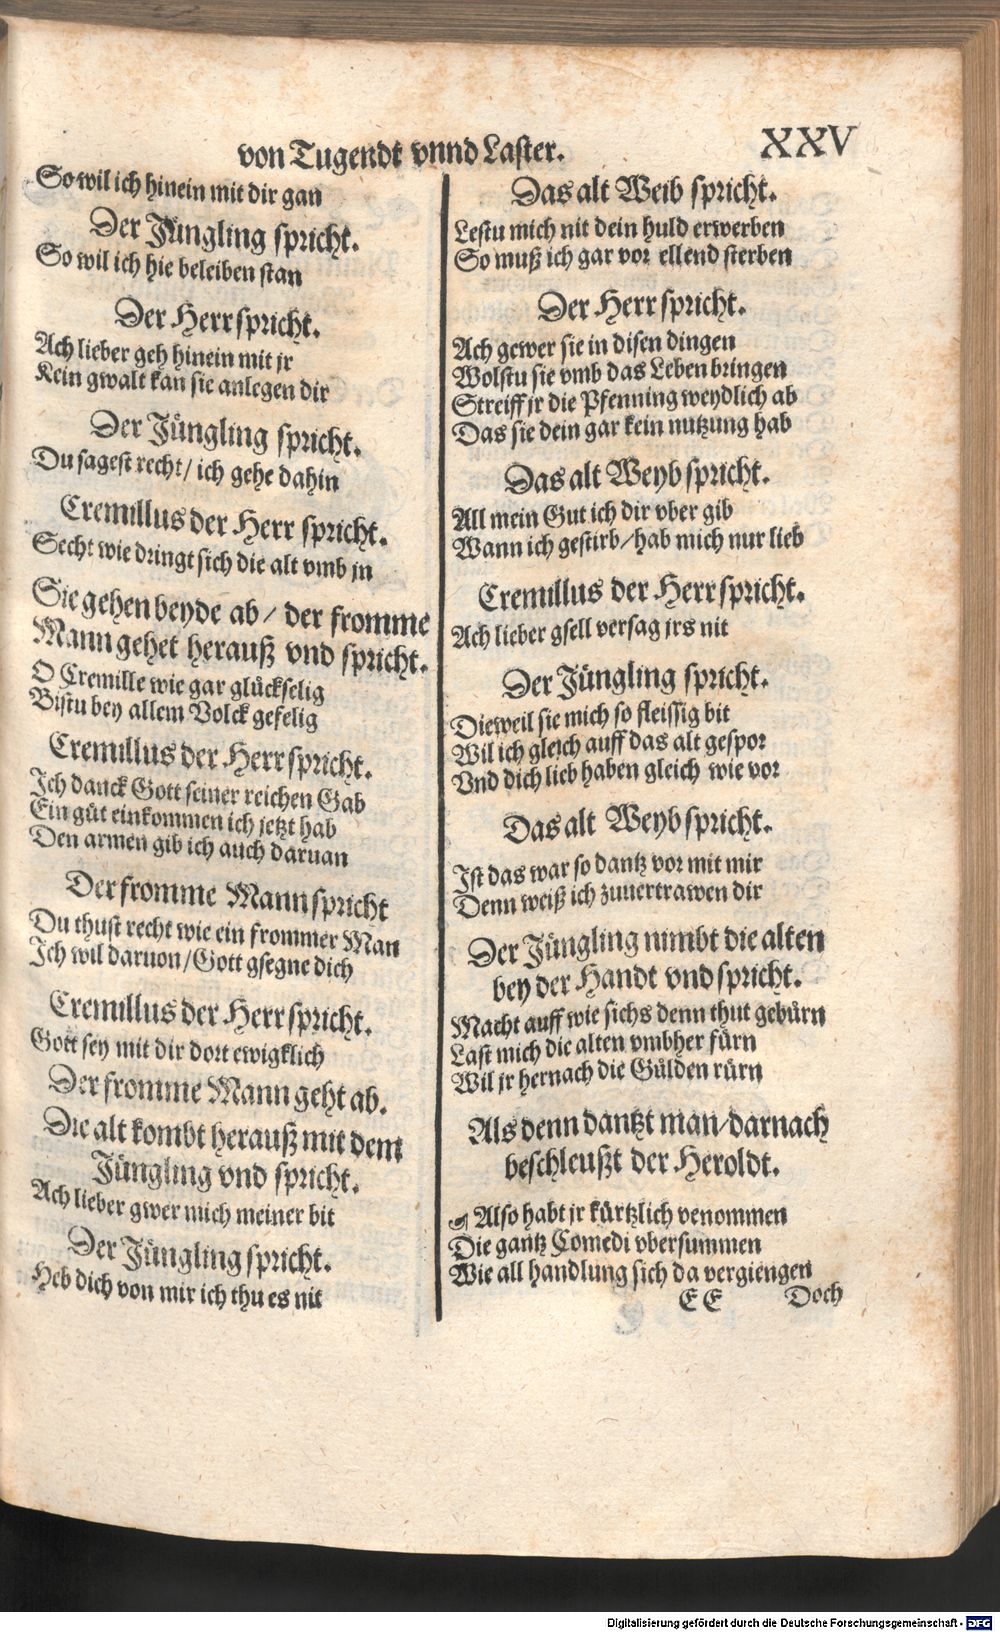 von Tugendt vnnd Laster.
XXV
So wil ich hinein mit dir gan
Der Jüngling spricht.
So wil ich hie beleiben stan
Der Herr spricht.
Ach lieber geh hinein mit jr
Kein gwalt kan sie anlegen dir
Der Jüngling spricht.
Du sagest recht/ ich gehe dahin
Cremillus der Herr spricht.
Secht wie dringt sich die alt vmb jn
Sie gehen beyde ab/ der fromme
Mann gehet herauß vnd spricht.
O Cremille wie gar glückselig
Bistu bey allem Volck gefelig
Cremillus der Herr spricht.
Ich danck Gott seiner reichen Gab
Ein gůt einkommen ich jetzt hab
Den armen gib ich auch daruan
Der fromme Mann spricht
Du thust recht wie ein frommer Man
Ich wil daruon/ Gott gsegne dich
Cremillus der Herr spricht.
Gott sey mit dir dort ewigklich
Der fromme Mann geht ab.
Die alt kombt herauß mit dem
Jüngling vnd spricht.
Ach lieber gwer mich meiner bit
Der Jüngling spricht.
Heb dich von mir ich thu es nit
Das alt Weib spricht.
Lestu mich nit dein huld erwerben
So muß ich gar vor ellend sterben
Der Herr spricht.
Ach gewer sie in disen dingen
Wolstu sie vmb das Leben bringen
Streiff jr die Pfenning weydlich ab
Das sie dein gar kein nutzung hab
Das alt Weyb spricht.
All mein Gut ich dir vber gib
Wann ich gestirb/ hab mich nur lieb
Cremillus der Herr spricht.
Ach lieber gsell versag jrs nit
Der Jüngling spricht.
Dieweil sie mich so fleissig bit
Wil ich gleich auff das alt gespor
Vnd dich lieb haben gleich wie vor
Das alt Weyb spricht.
Ist das war so dantz vor mit mir
Denn weiß ich zuuertrawen dir
Der Jüngling nimbt die alten
bey der Handt vnd spricht.
Macht auff wie sichs denn thut gebürn
Last mich die alten vmbher fürn
Wil jr hernach die Gülden rürn
Als denn dantzt man/ darnach
beschleußt der Heroldt.
Also habt jr kürtzlich venommen
Die gantz Comedi vbersummen
Wie all handlung sich da vergiengen
E E
Doch
Digitalisierung gefördert durch die Deutsche Forschungsgemeinschaft - DFG